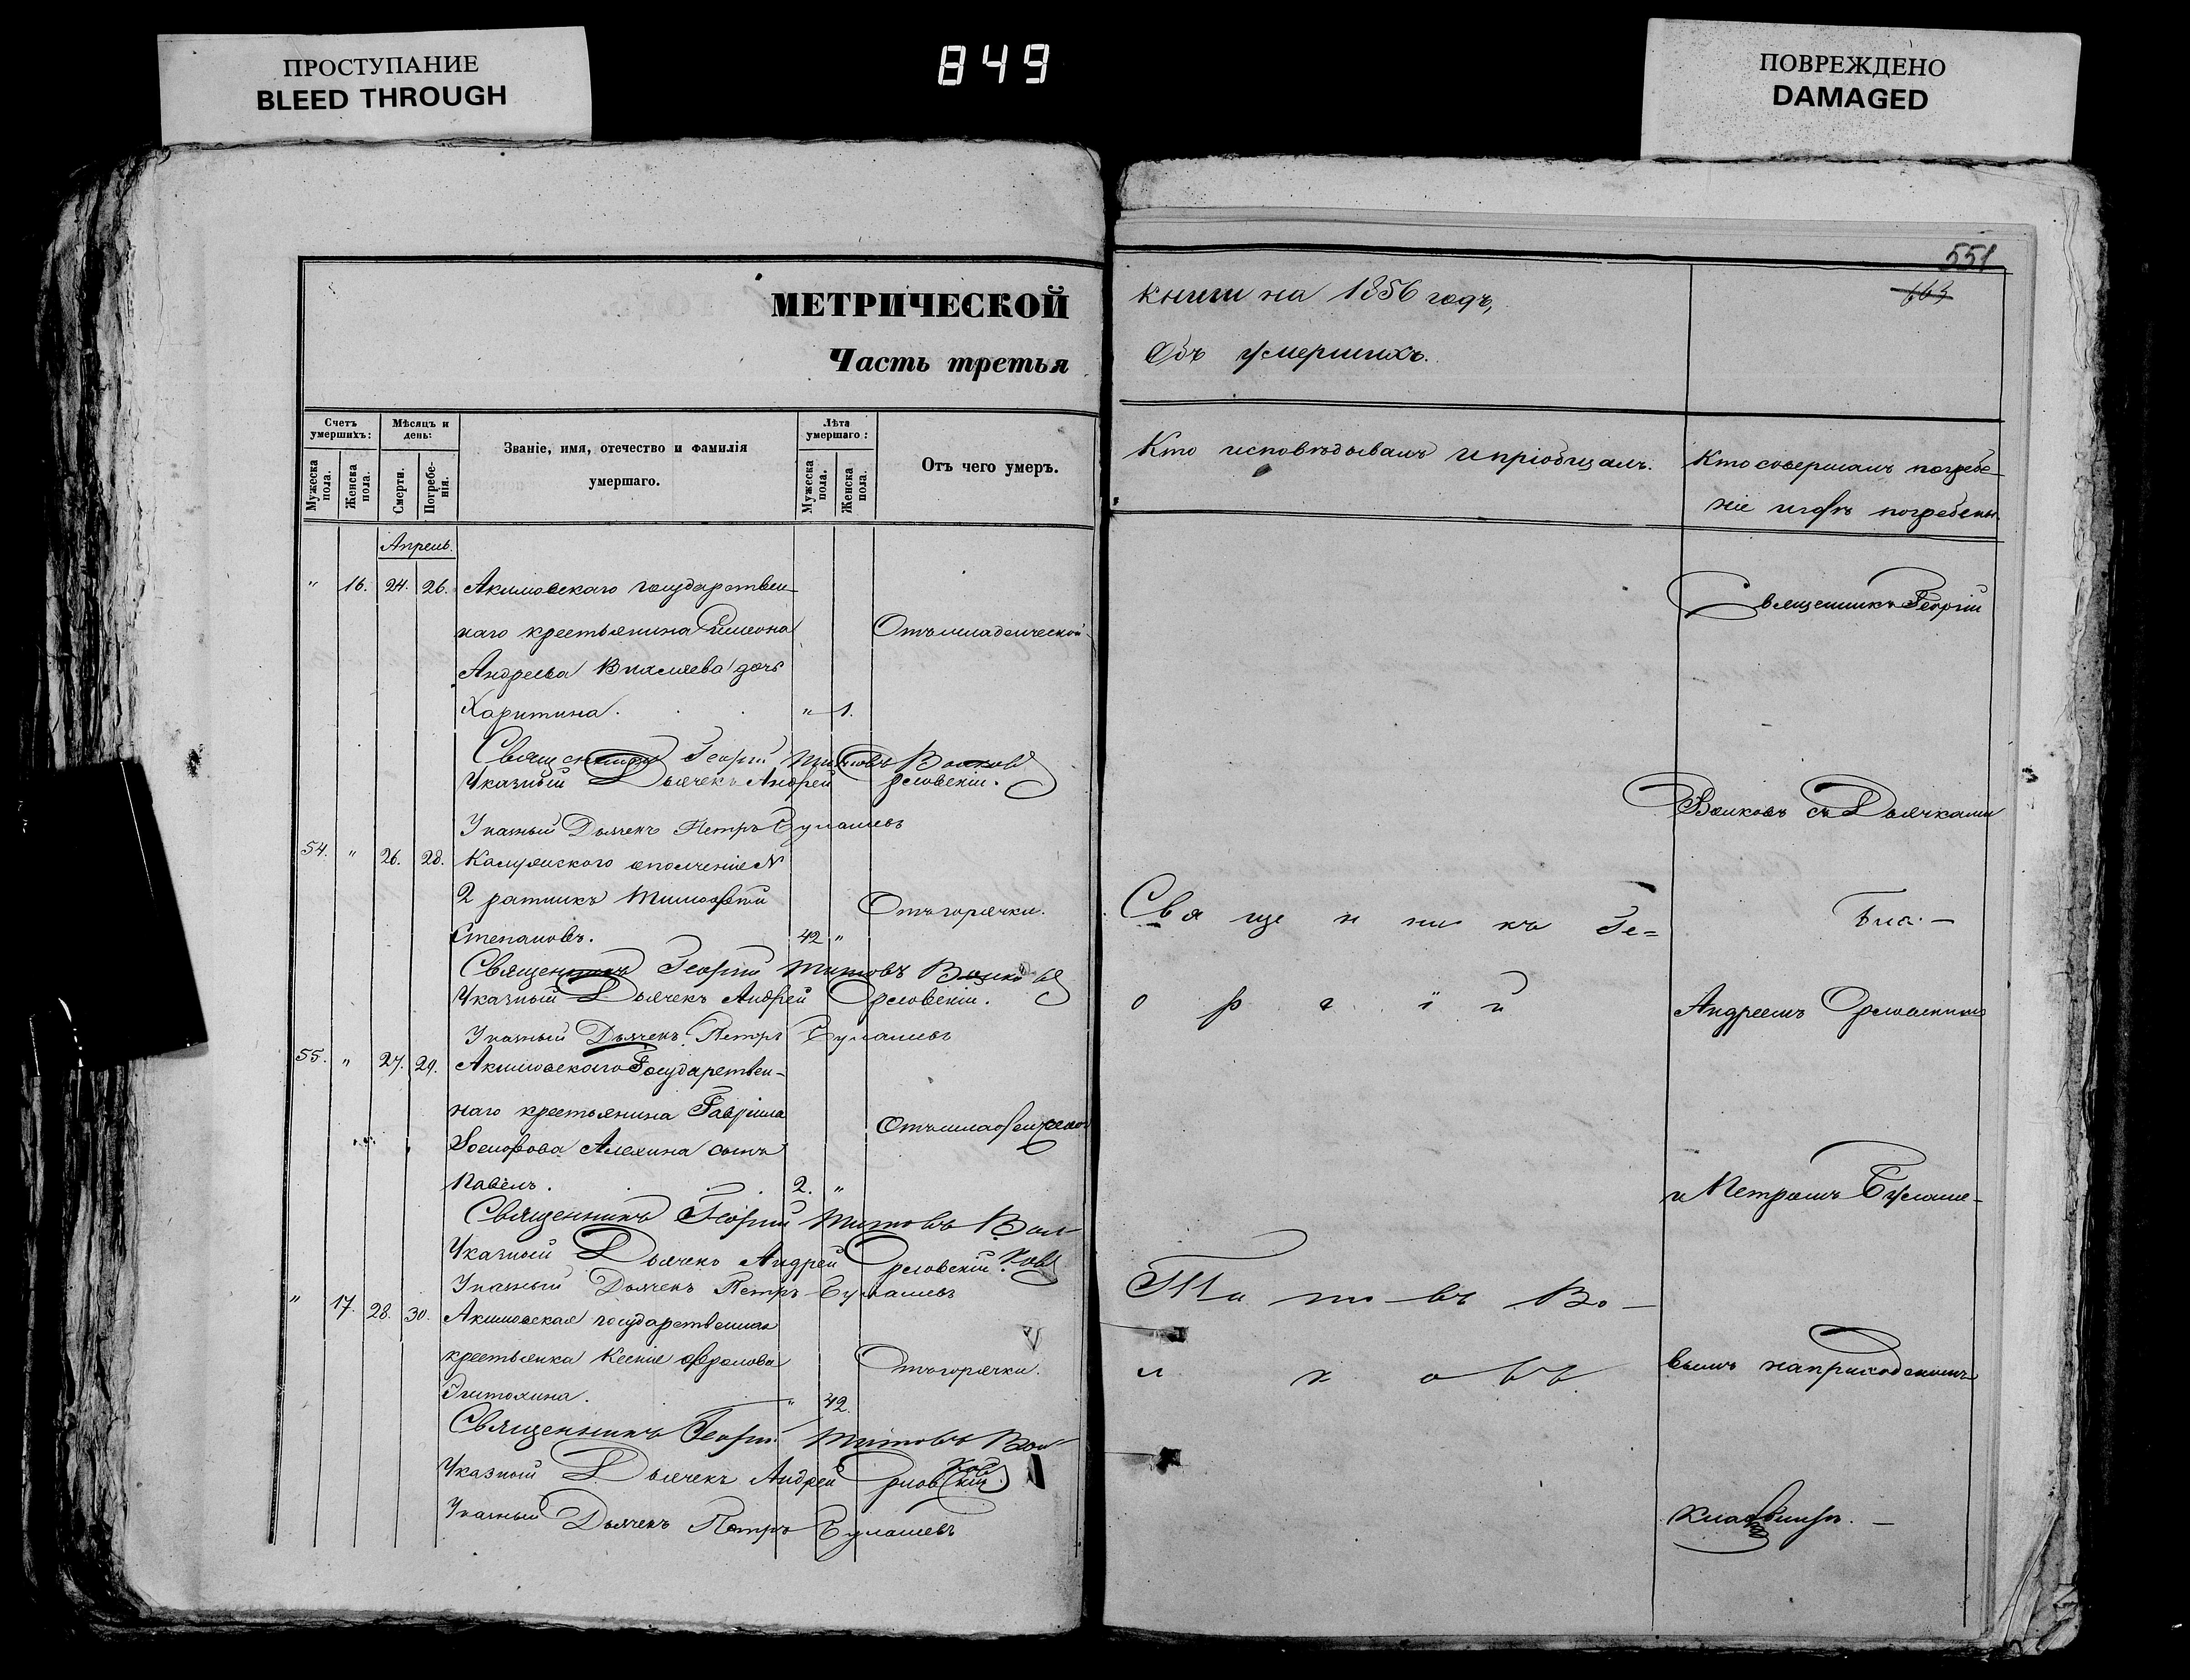 ПРОСТУПАНИЕ
BLEED THROUGH
849
ПОВРЕЖДЕНО
DAMAGED
МЕТРИЧЕСКОЙ
Часть третья
Счетъ умершихъ:
Мужеска пола.
Женска пола.
Мѣсяцъ и день:
Смерти.
Погребенія.
Званіе, имя, отечество и фамилія
умершаго.
Лѣта умершаго:
Мужеска пола.
Женска пола.
Отъ чего умеръ.
Апрель.
" 16. 24. 26. Акимовскаго государствен-
наго крестьянина Симеона Отъ младенческой
Андреева дочь
Харитина. " 1.
Священникъ Георгій Титовъ Волковъ
Указный Дьячекъ Андрей Орловскій.
Указный Дьячекъ Петръ Булашевъ
54. " 26. 28. ополченіе №
2 ратникъ Тимофей Отъ горячки.
Степановъ. 42 "
Священникъ Георгій Титовъ Волковъ
Указный Дьячекъ Андрей Орловскій.
Указный Дьячекъ Петръ Булашевъ
55. " 27. 29. Акимовскаго Государствен-
наго крестьянина Гавріила Отъ младенческой
Алехина сынъ
Павелъ. 2. "
Священникъ Георгій Титовъ Вол-
ковъ
Указный Дьячекъ Андрей Орловскій
Указный Дьячекъ Петръ Булашевъ
" 17. 28. 30. Акимовская государственная
крестьянка Ксенія Фролова Отъ горячки.
" 42.
Священникъ Георгій Титовъ Вол-
ковъ
Указный Дьячекъ Андрей Орловскій
Указный Дьячекъ Петръ Булашевъ
551
книги на 1856 годъ,
Объ умершихъ.
Кто исповѣдывалъ и пріобщалъ.
Кто совершалъ погребе-
ніе и гдѣ погребены.
Священникъ Ге=
оргій
Титовъ Во-
лковъ
Священникъ Георгій
Волковъ съ Дьячками
Андреемъ Орловскимъ
и Петромъ Булаше-
вымъ на приходскомъ
кладбищѣ. -